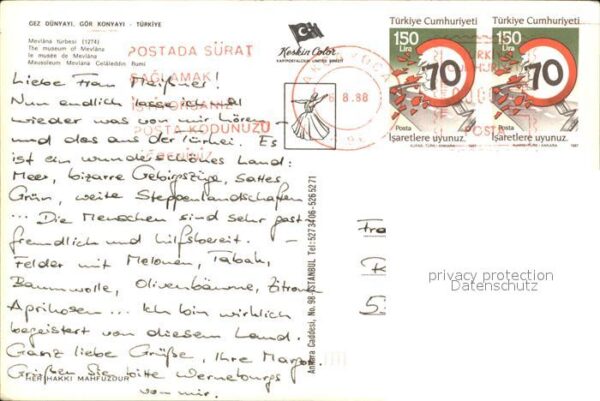 GEZ DÜNYAYI, GÖR KONYAYI - TÜRKİYE
Mevlâna türbesi (1274)
The museum of Mevlâna
le musée de Mevlâna
Mausoleum Mevlana Celâleddin Rumi
POSTADA SÜRAT
SAĞLAMAK
POSTA KODUNUZU
Keskin Color
KARTPOSTALCILIK LIMITED ŞİRKETİ
8.88
Türkiye Cumhuriyeti
150
Lira
70
Posta
İşaretlere uyunuz.
1987
Türkiye Cumhuriyeti
150
Lira
70
Posta
İşaretlere uyunuz.
1987
Liebe Frau Meißner!
Nun endlich lasse ich mal
wieder was von mir hören –
und das aus der Türkei. Es
ist ein wunderschönes Land:
Meer, bizarre Gebirgszüge, sattes
Grün, weite Steppenlandschaften
... Die Menschen sind sehr gast-
freundlich und hilfsbereit. –
Felder mit Melonen, Tabak,
Baumwolle, Olivenbäume, Zitronen
Aprikosen ... Ich bin wirklich
begeistert von diesem Land.
Ganz liebe Grüße, Ihre Margot.
Grüßen Sie bitte Wernebourgs
von mir.
HER HAKKI MAHFUZDUR
Ankara Caddesi, No. 98 - İSTANBUL Tel: 5273406-5265271
privacy protection
Datenschutz